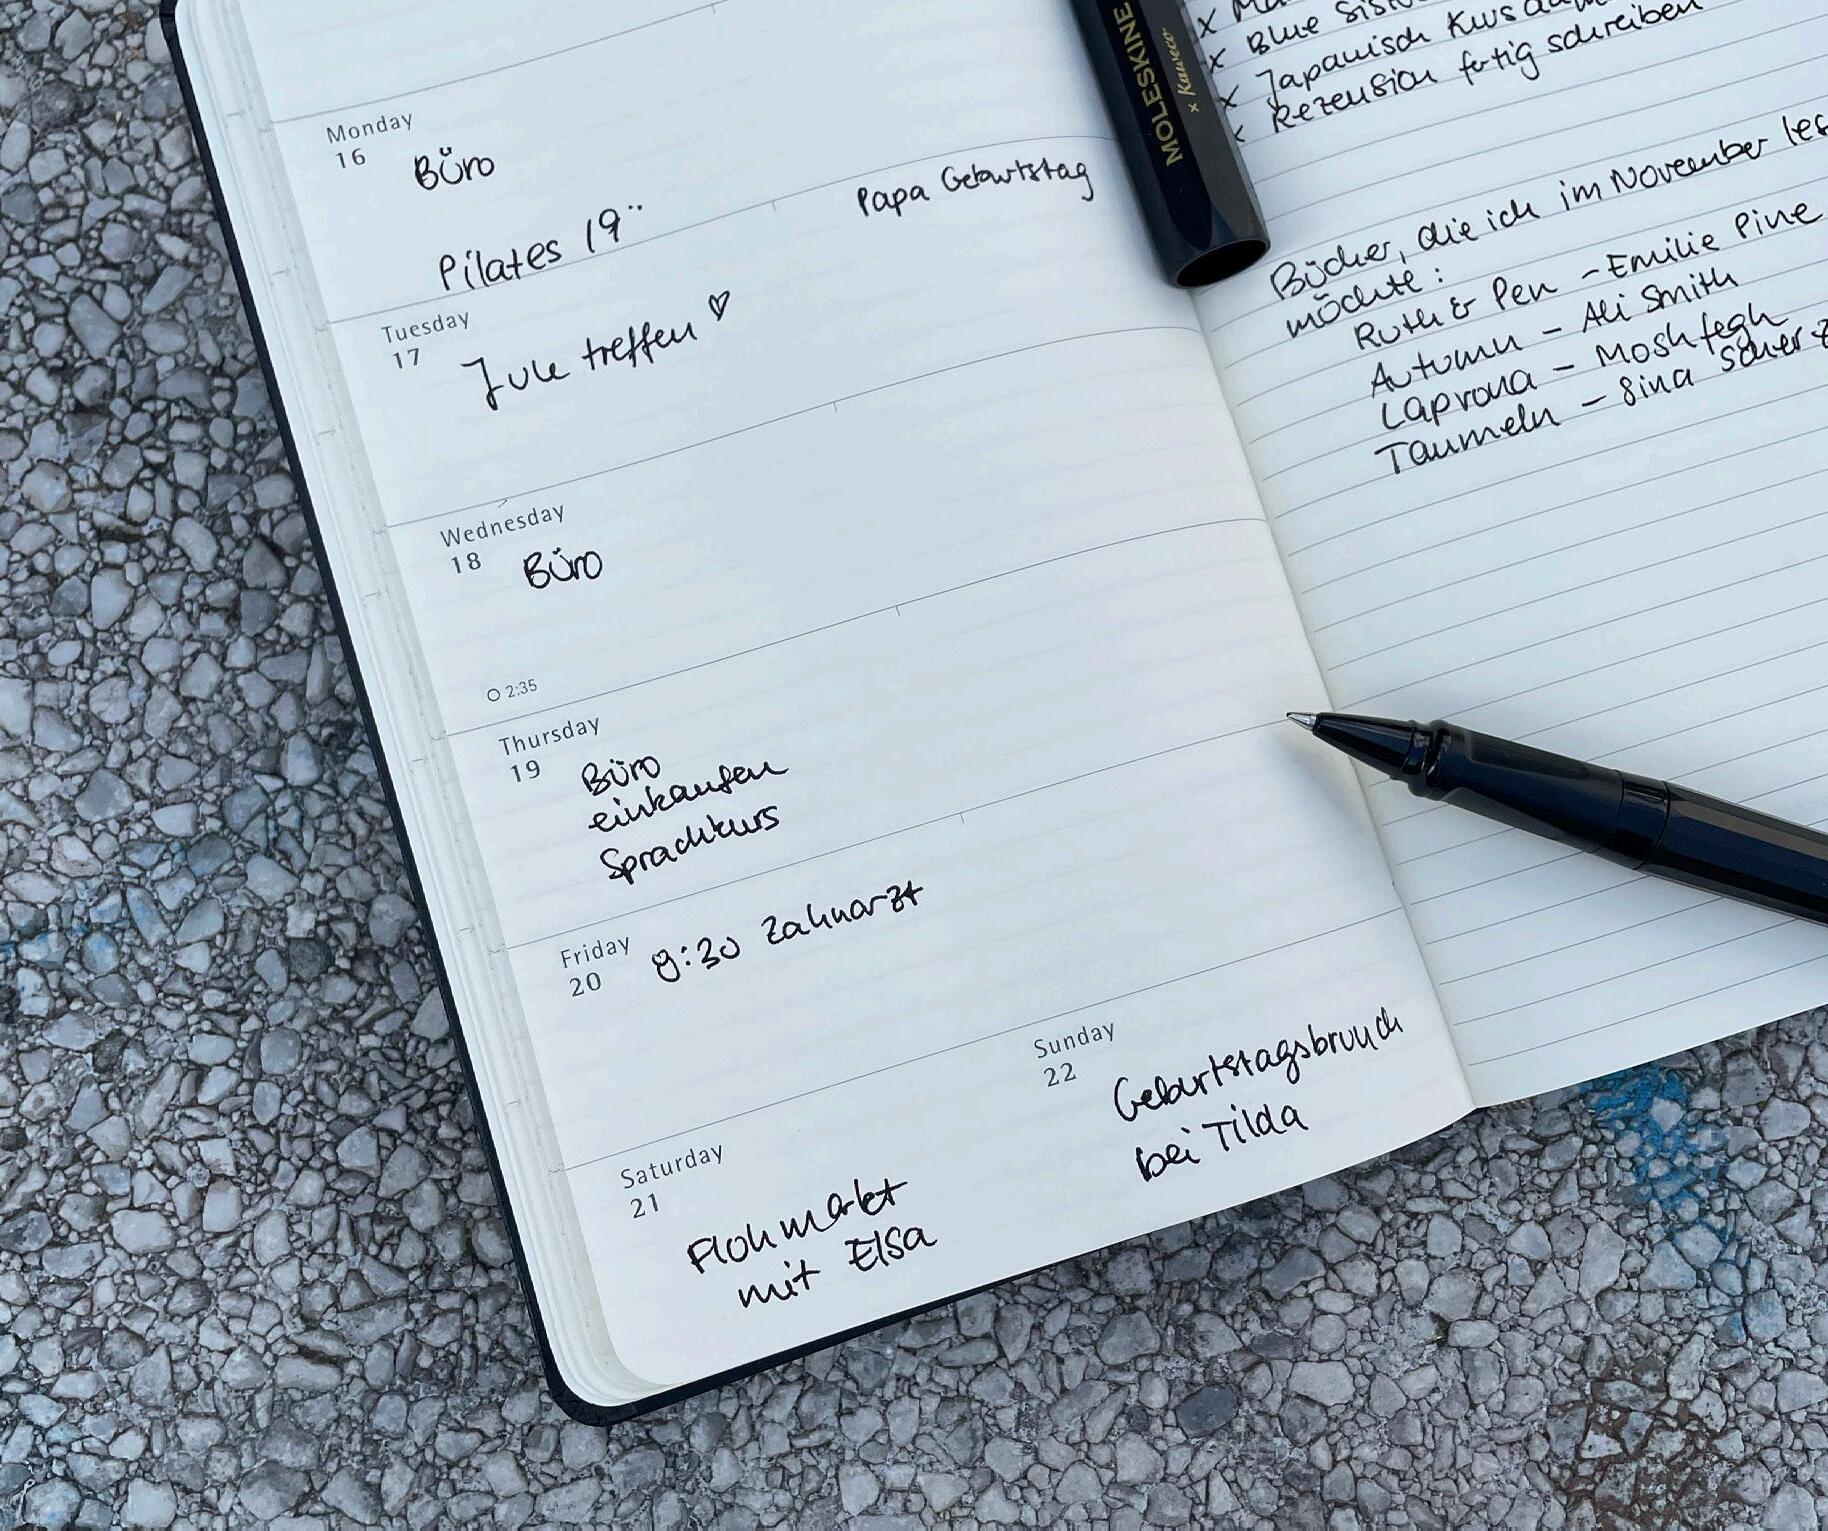 Monday
16
Büro
Pilates 19⁰⁰
Papa Geburtstag
Tuesday
17
Jule treffen ♡
Wednesday
18
Büro
2:35
Thursday
19
Büro
einkaufen
Sprachkurs
Friday
20
8:30 Zahnarzt
Saturday
21
Flohmarkt
mit Elsa
Sunday
22
Geburtstagsbrunch
bei Tilda
MOLESKINE
x Kaweco
x
x Blue
x Japanisch Kurs
x Rezension fertig schreiben
Bücher, die ich im November
möchte:
Ruth & Pen - Emilie Pine
Autumn - Ali Smith
Laprona - Moshfegh
Taumeln - Sina